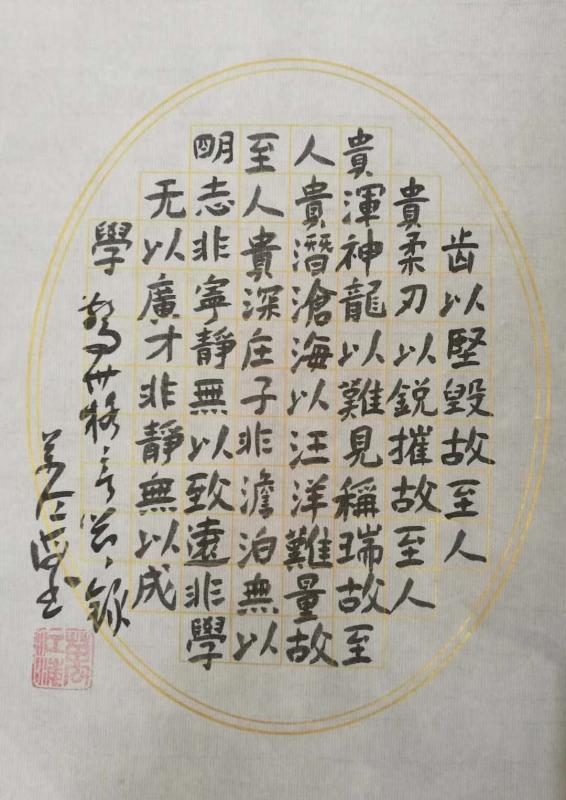 齿以堅毀故至人
貴柔刃以銳摧故至人
貴渾神龍以難見稱瑞故至
人貴潛滄海以汪洋難量故
至人貴深庄子非澹泊無以
明志非寧靜無以致遠非學
无以廣才非靜無以成
學
警世格言